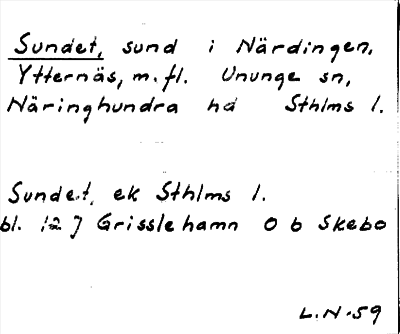 Sundet, sund i Närdingen,
Ytternäs, m.fl. Ununge sn,
Näringhundra hd Sthlms l.
Sundet, ek Sthlms l.
bl. 12 J Grisslehamn O b Skebo
L.N-59